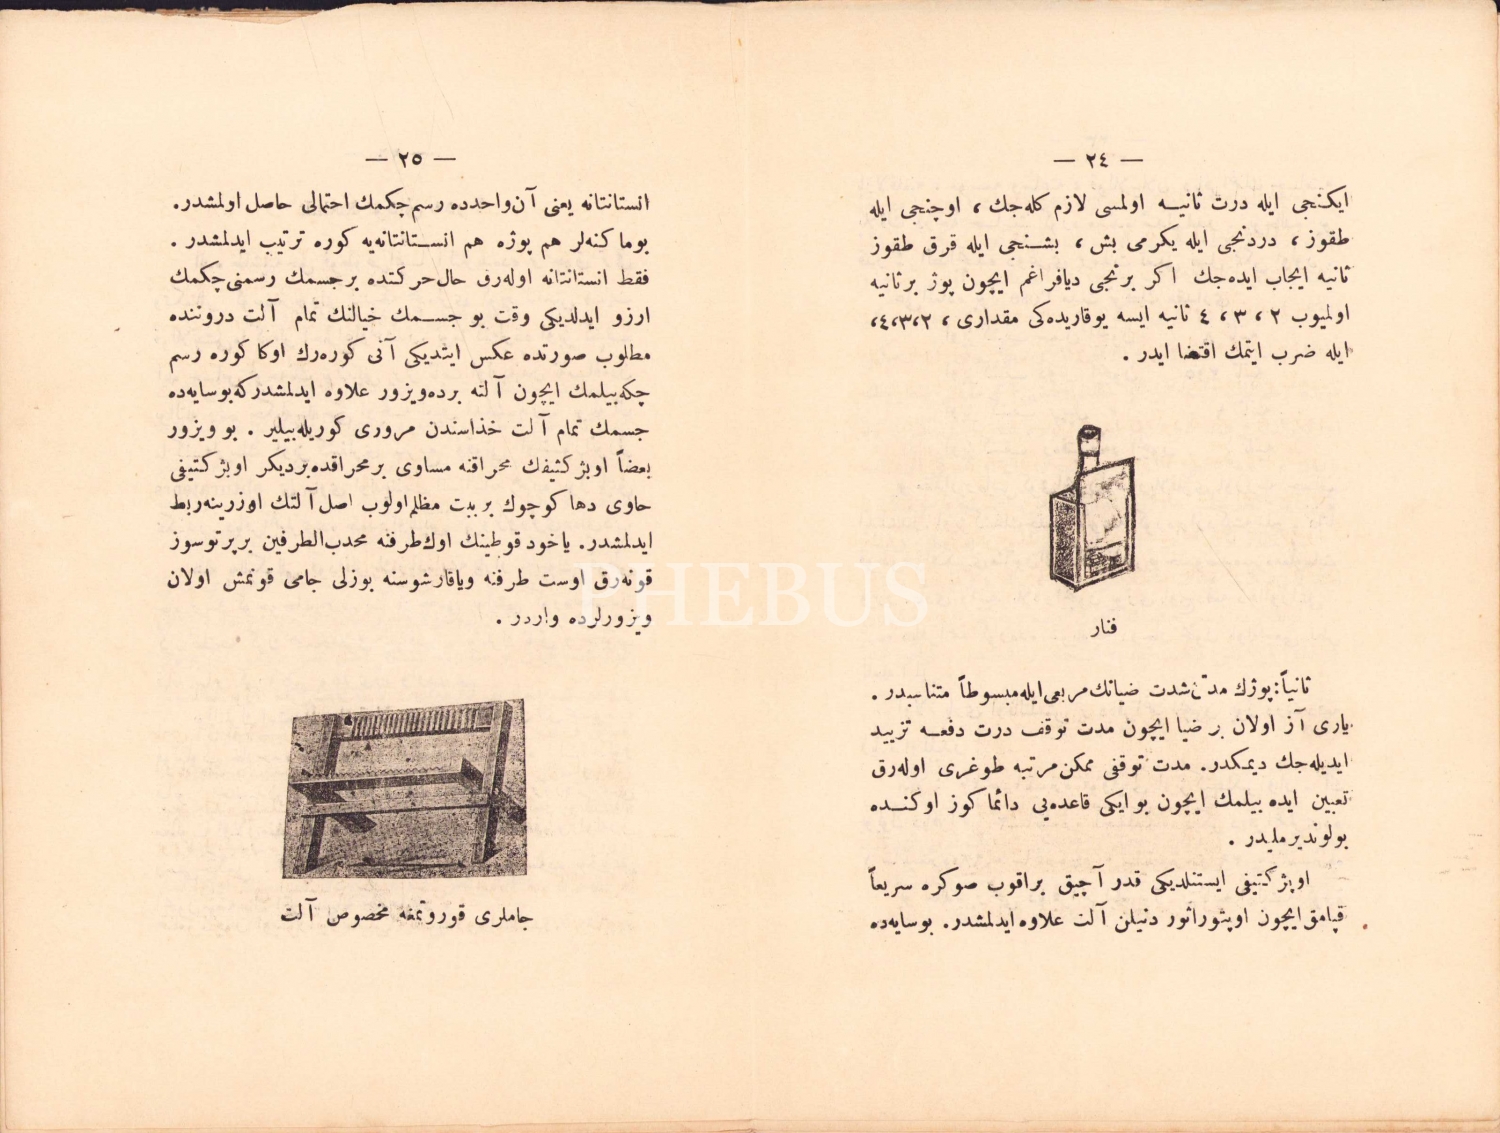 — ٢٤ —
ایكنجی ایله درت ثانیه اولمسی لازم كله جك ، اوچنجی ایله
طقوز ، دردنجی ایله یكرمی بش ، بشنجی ایله قرق طقوز
ثانیه ایجاب ایده جك اكر برنجی دیافراغم ایچون پوز برثانیه
اولمیوب ٢ ، ٣ ، ٤ ثانیه ایسه یوقاریده كی مقداری ، ٢،٣،٤،
ایله ضرب ایتمك اقتضا ایدر .
فنار
ثانیاً: پوزك مدتی شدت ضیانك مربعی ایله مبسوطاً متناسبدر .
یاری آز اولان بر ضیا ایچون مدت توقف درت دفعه تزیید
ایدیله جك دیمكدر. مدت توقفی ممكن مرتبه طوغری اوله رق
تعیین ایده بیلمك ایچون بو ایكی قاعده یی دائما كوز اوكنده
بولوندیرملیدر .
اوبژكتیفی ایستنلدیكی قدر آچیق براقوب صوكره سریعاً
قپامق ایچون اوپتوراتور دنیلن آلت علاوه ایدلمشدر. بوسایه ده
— ٢٥ —
انستانتانه یعنی آن واحدده رسم چكمك احتمالی حاصل اولمشدر.
بوماكنه لر هم پوزه هم انستانتانه یه كوره ترتیب ایدلمشدر .
فقط انستانتانه اوله رق حال حركتده برجسمك رسمنی چكمك
ارزو ایدلدیكی وقت بو جسمك خیالنك تمام آلت دروننده
مطلوب صورتده عكس ایتدیكی آنی كوره رك اوكا كوره رسم
چكه بیلمك ایچون آلته برده ویزور علاوه ایدلمشدركه بوسایه ده
جسمك تمام آلت خذاسندن مروری كوریله بیلیر . بو ویزور
بعضاً اوبژكتیفك محراقنه مساوی برمحراقده بردیكر اوبژكتیفی
حاوی دها كوچوك بربیت مظلم اولوب اصل آلتك اوزرینه ربط
ایدلمشدر. یاخود قوطینك اوك طرفنه محدب الطرفین برپرتوسوز
قونه رق اوست طرفنه ویاقارشوسنه بوزلی جامی قونمش اولان
ویزورلرده واردر .
جاملری قوروتمغه مخصوص آلت
PHEBUS